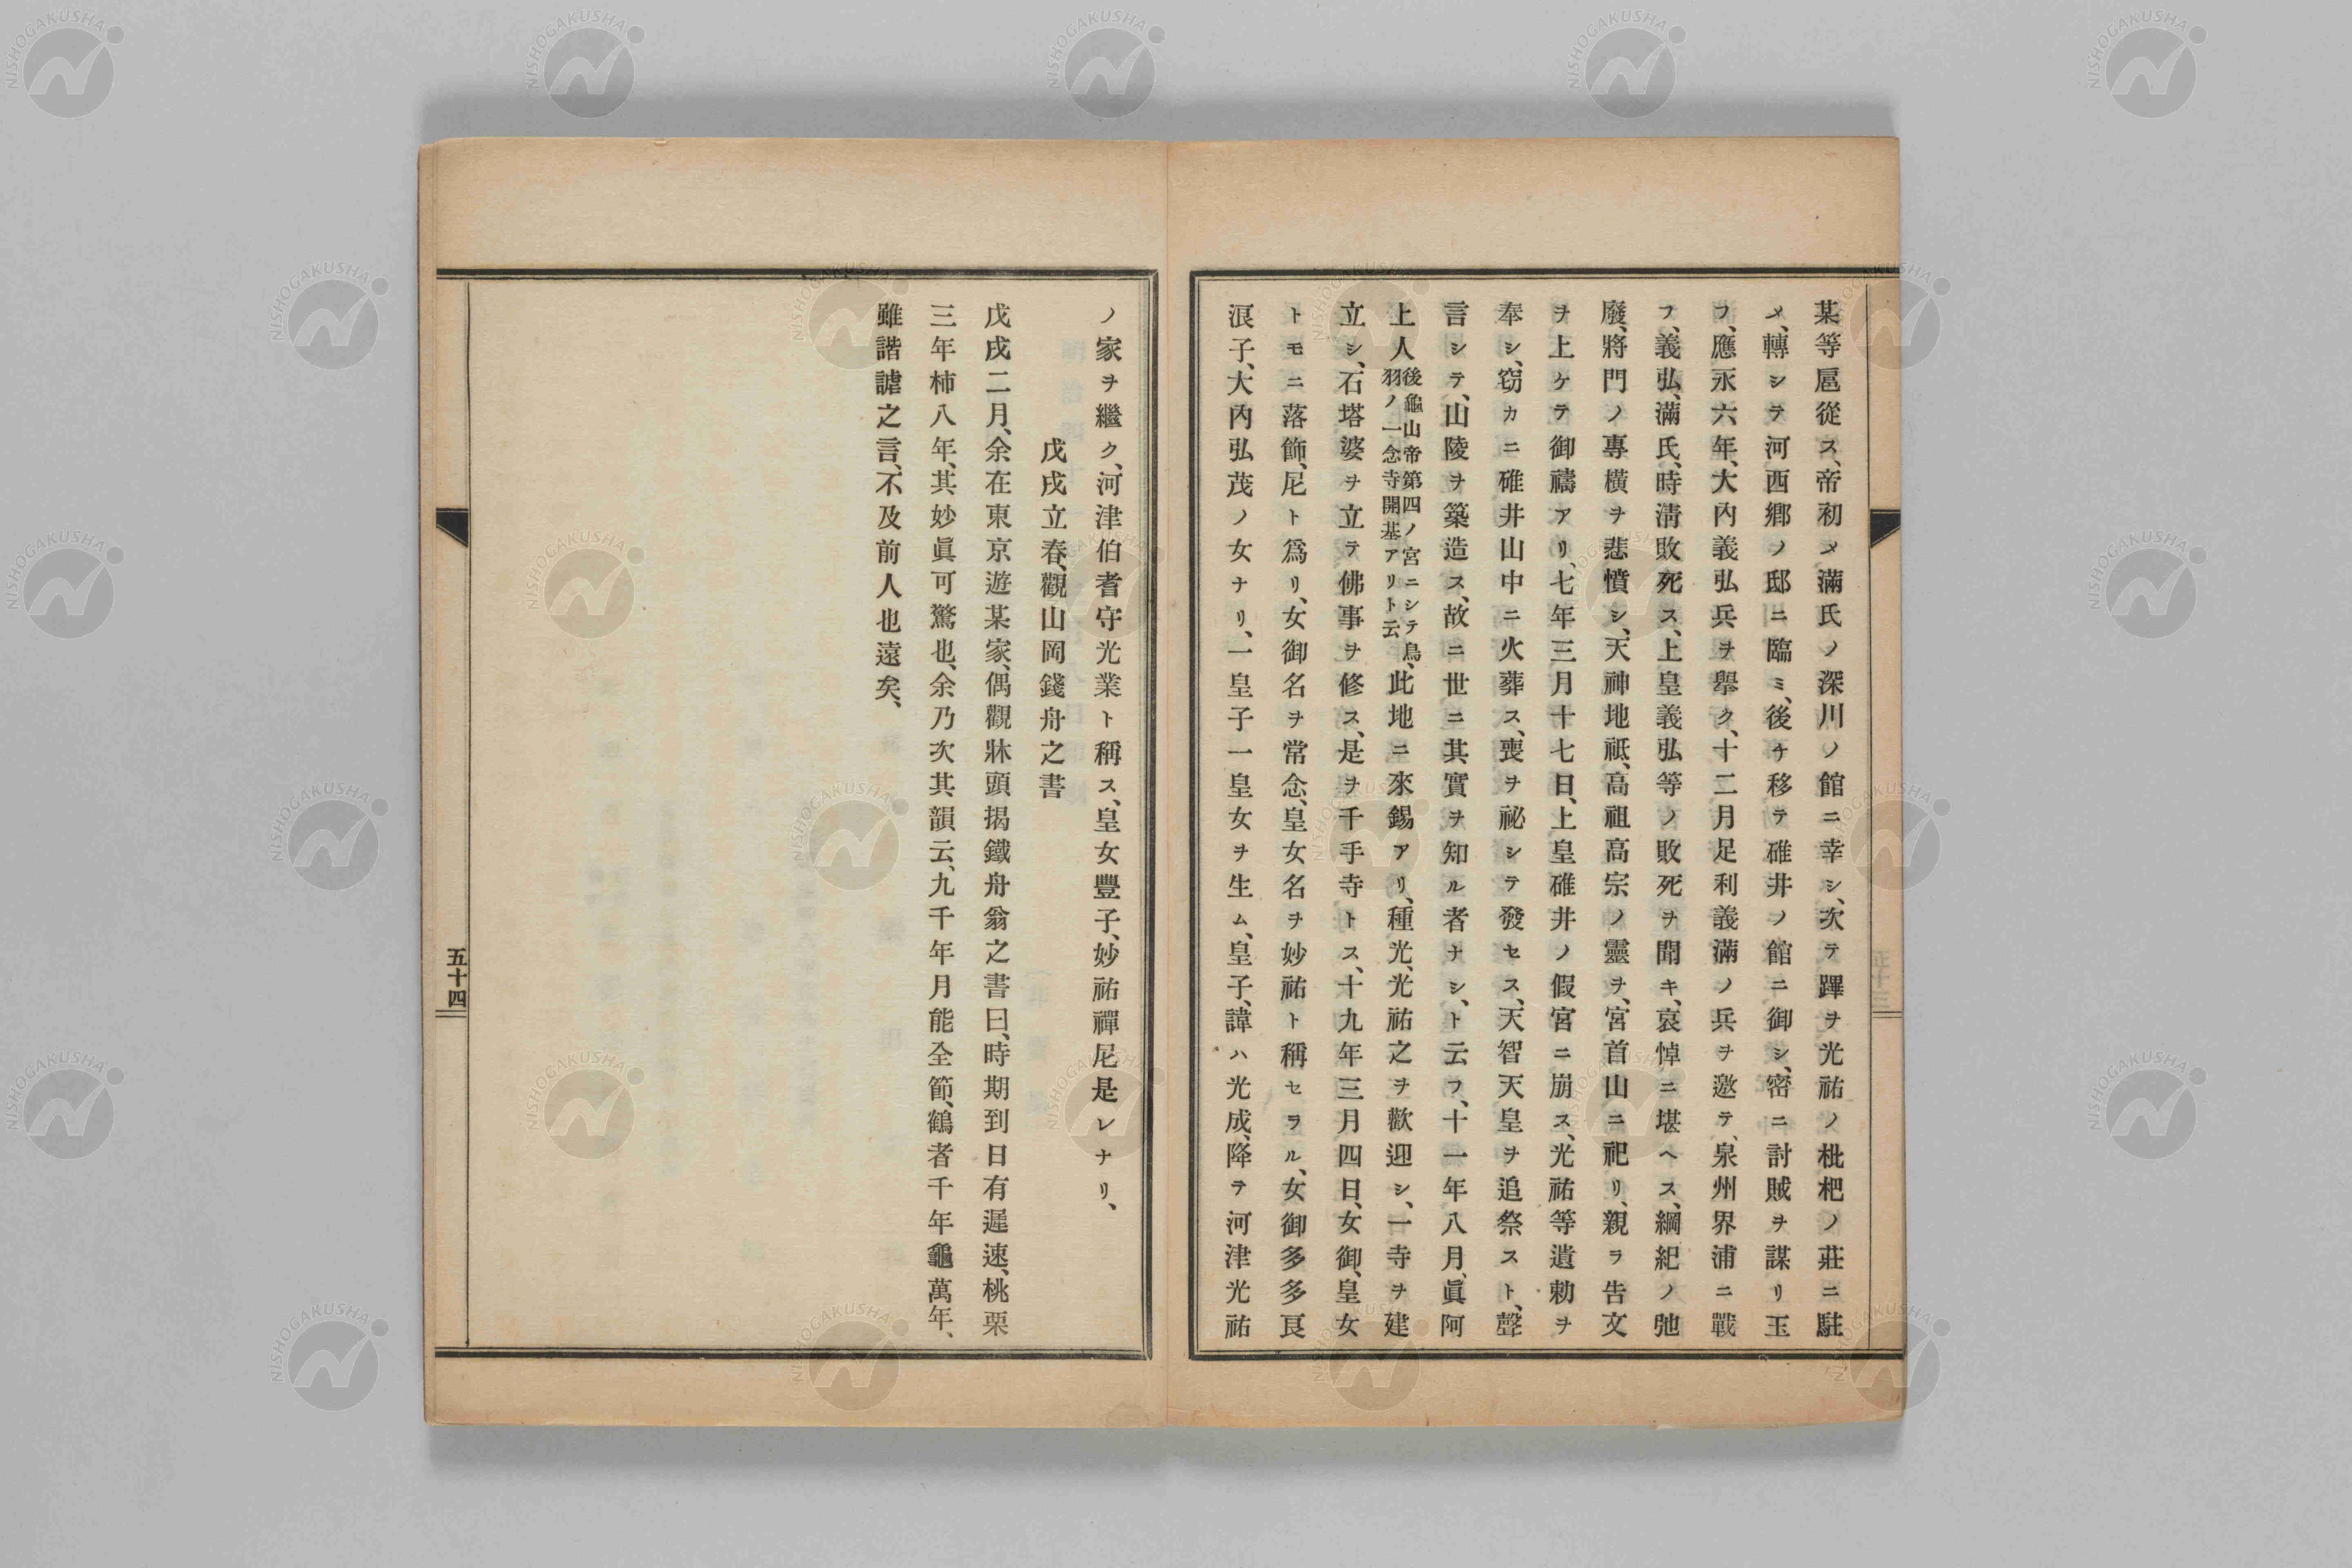 某等扈從ス、帝初メ滿氏ノ深川ノ館ニ幸シ、次テ蹕ヲ光祐ノ枇杷ノ莊ニ駐
メ、轉シテ河西鄕ノ邸ニ臨ミ、後チ移テ碓井ノ館ニ御シ、密ニ討賊ヲ謀リ玉
フ、應永六年、大內義弘兵ヲ擧ク、十二月足利義滿ノ兵ヲ邀テ、泉州界浦ニ戰
フ、義弘、滿氏、時淸敗死ス、上皇義弘等ノ敗死ヲ聞キ、哀悼ニ堪ヘス、綱紀ノ弛
廢、將門ノ專橫ヲ悲憤シ、天神地祇、高祖高宗ノ靈ヲ、宮首山ニ祀リ、親ラ告文
ヲ上ケテ御禱アリ、七年三月十七日、上皇碓井ノ假宮ニ崩ス、光祐等遺勅ヲ
奉シ、窃カニ碓井山中ニ火葬ス、喪ヲ祕シテ發セス、天智天皇ヲ追祭スト、聲
言シテ、山陵ヲ築造ス、故ニ世ニ其實ヲ知ル者ナシ、ト云フ、十一年八月、眞阿
上人後龜山帝第四ノ宮ニシテ鳥羽ノ一念寺開基アリト云、此地ニ來錫アリ、種光、光祐之ヲ歡迎シ、一寺ヲ建
立シ、石塔婆ヲ立テ佛事ヲ修ス、是ヲ千手寺トス、十九年三月四日、女御、皇女
トモニ落飾、尼ト爲リ、女御名ヲ常念、皇女名ヲ妙祐ト稱セラル、女御多多良
浪子、大內弘茂ノ女ナリ、一皇子一皇女ヲ生ム、皇子、諱ハ光成、降テ河津光祐
ノ家ヲ繼ク、河津伯耆守光業ト稱ス、皇女豐子、妙祐禪尼是レナリ、
戊戌立春、觀山岡鐵舟之書
戊戌二月、余在東京遊某家、偶觀牀頭揭鐵舟翁之書曰、時期到日有遲速、桃栗
三年柿八年、其妙眞可驚也、余乃次其韻云、九千年月能全節、鶴者千年龜萬年、
雖諧謔之言、不及前人也遠矣、
五十四